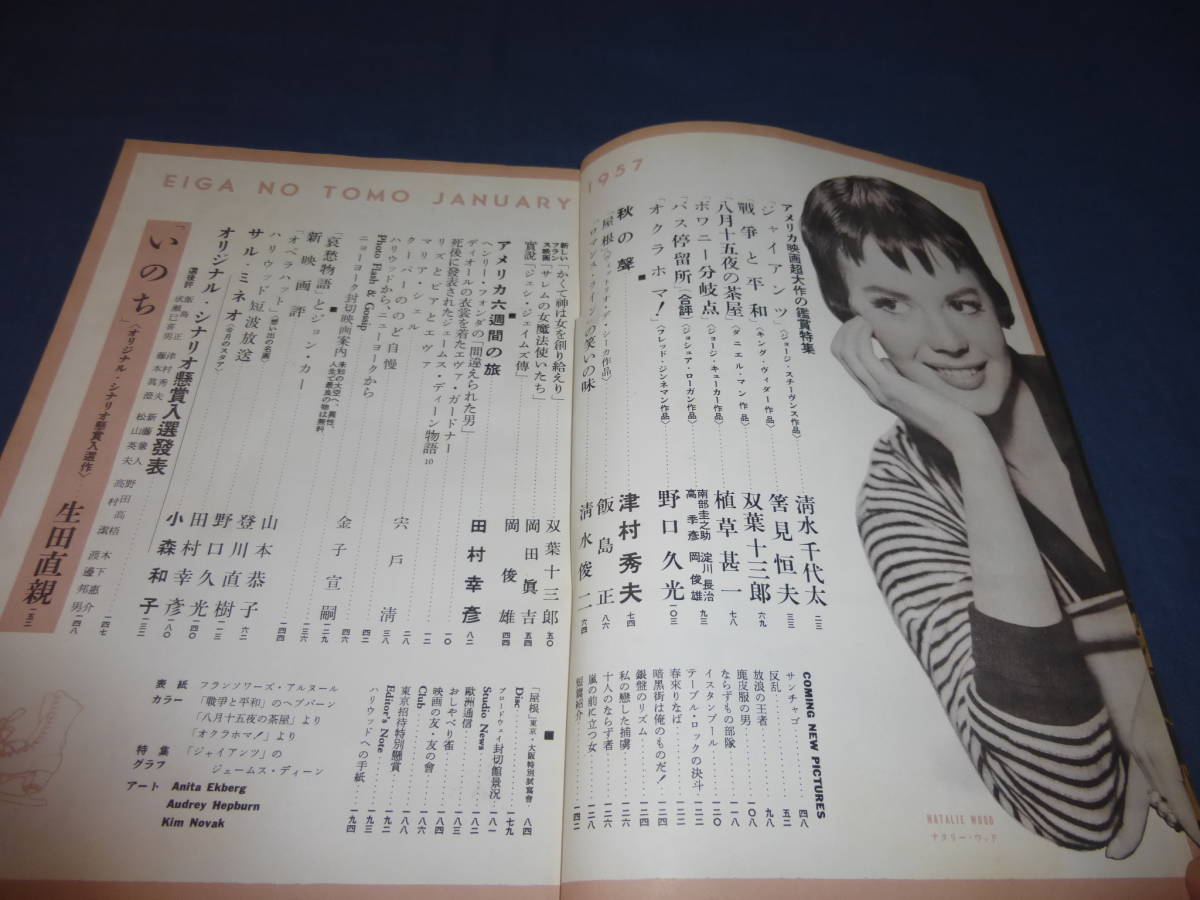 EIGA NO TOMO JANUARY 1957
アメリカ映画超大作の鑑賞特集
「ジャイアンツ」(ジョージ・スチーヴンス作品) 清水千代太 二三
「戰爭と平和」(キング・ヴィダー作品) 筈見恒夫 三三
「八月十五夜の茶屋」(ダニエル・マン作品) 双葉十三郎 六九
「ボワニー分岐点」(ジョージ・キューカー作品) 植草甚一 七八
「バス停留所」(合評)(ジョシュア・ローガン作品) 南部圭之助 淀川長治 高季彦 岡俊雄 九三
「オクラホマ!」(フレッド・ジンネマン作品) 野口久光 一〇三
秋の聲 津村秀夫 七四
「屋根」(ヴィットリオ・デ・シーカ作品) 飯島正 八六
の笑いの味 清水俊二 六四
新しいフランス映画「かくて神は女を創り給えり」 双葉十三郎 五〇
「サレムの女魔法使いたち」 岡田眞吉 五四
實説『ジェシ・ジェイムズ傳』 岡俊雄 四四
アメリカ六週間の旅 田村幸彦 八二
ヘンリー・フォンダの「間違えられた男」 一〇
ディオールの衣裳を着たエヴァ・ガードナー
死後に發表されたジェームス・ディーン物語 10
リズとピアとエヴァ
マリア・シェル 一二
クーパーののど自慢 二八
ハリウッドから、ニューヨークから 宍戸清 三八
Photo Flash & Gossip 四二
ニューヨーク封切映画案内 未知の大空へ、異性、人生で最良の物は無料 金子宣嗣 四六
「哀愁物語」とジョン・カー 一二九
新映画評 一三六
「オペラハット」(想い出の名画) 一四四
ハリウッド短波放送 山本恭子 六二
サル・ミネオ(今月のスタア) 登川直樹 一一三
オリジナル・シナリオ懸賞入選發表
選後評 飯島正 津村秀夫 新藤兼人 野田高梧 木下惠介 成瀬巳喜男 藤本眞澄 松山英夫 高村潔 渡邊邦男 一四七 一四八
野口久光 一四〇
田村幸彦 一八〇
小森和子 一三二
「いのち」(オリジナル・シナリオ懸賞入選作) 生田直親 一五二
COMING NEW PICTURES
サンチャゴ 四八
反乱 五二
放浪の王者 九八
鹿皮服の男 一〇八
ならずもの部隊 一一八
イスタンブール 一二〇
テーブル・ロックの決斗 一二二
春来りなば 一二二
暗黒街は俺のものだ! 一二四
銀盤のリズム 一二四
私の戀した捕虜 一二六
十人のならず者 一二六
嵐の前に立つ女 一二八
短篇紹介 一四二
「屋根」東京・大阪特別試寫會 八四
Disc 一七九
ブロードウェイ封切館景況 一八一
Studio News 一八二
歐洲通信 一八三
おしゃべり雀 一八四
映画の友・友の會 一八六
Club 一八八
東京招待特別懸賞 一九二
Editor's Note 一九三
ハリウッドへの手紙 一九四
表紙 フランソワーズ・アルヌール
カラー 「戰爭と平和」のヘプバーン
「八月十五夜の茶屋」より
「オクラホマ!」より
特集グラフ 「ジャイアンツ」のジェームス・ディーン
アート Anita Ekberg
Audrey Hepburn
Kim Novak
NATALIE WOOD
ナタリー・ウッド